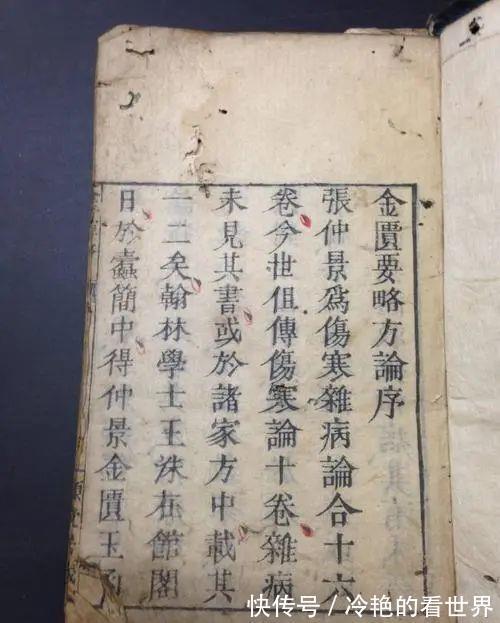 金匱要略方論序
張仲景爲傷寒雜病論合十六
卷今世但傳傷寒論十卷雜病
未見其書或於諸家方中載其
一二矣翰林學士王洙在館閣
日於蠹簡中得仲景金匱玉函
快传号 / 冷艳的看世界